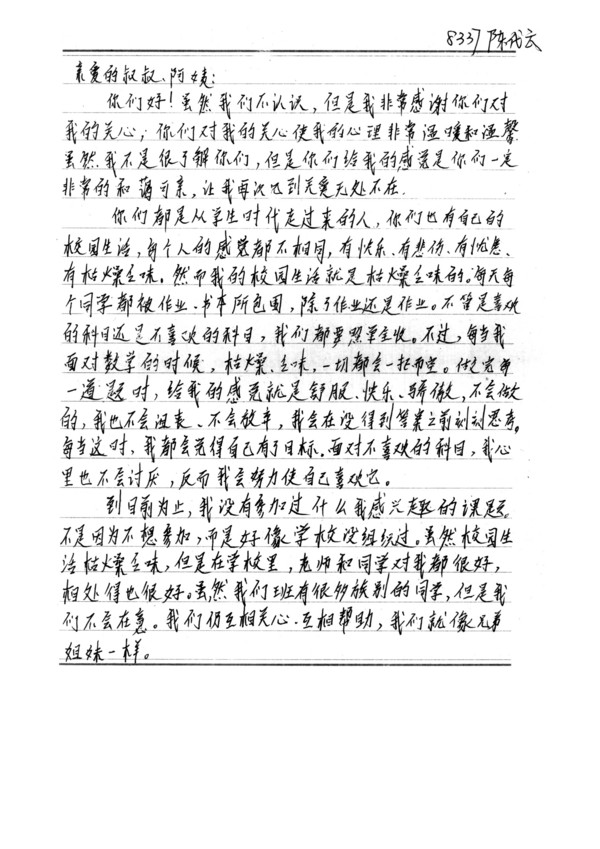 8337 陈代云
亲爱的叔叔、阿姨:
你们好!虽然我们不认识,但是我非常感谢你们对
我的关心;你们对我的关心使我的心理非常温暖和温馨
虽然我不是很了解你们,但是你们给我的感觉是你们一定
非常的和蔼可亲,让我再次 到关爱无处不在.
你们都是从学生时代走过来的人,你们也有自己的
校园生活,每个人的感觉都不相同,有快乐、有悲伤、有忧愁、
有枯燥乏味。然而我的校园生活就是枯燥乏味的。每天每
个同学都被作业、书本所包围,除了作业还是作业。不管是喜欢
的科目还是不喜欢的科目,我们都要照单全收。不过,每当我
面对数学的时候,枯燥、乏味,一切都会一扫而空。做完每
一道题时,给我的感觉就是舒服、快乐、骄傲,不会做
的,我也不会沮丧、不会放弃,我会在没得到答案之前刻刻思考。
每当这时,我都会觉得自己有了目标。面对不喜欢的科目,我心
里也不会讨厌,反而我会努力使自己喜欢它。
到目前为止,我没有参加过什么我感兴趣的课题。
不是因为不想参加,而是好像学校没组织过。虽然校园生
活枯燥乏味,但是在学校里,老师和同学对我都很好,
相处得也很好。虽然我们班有很多族别的同学,但是我
们不会在意。我们仍互相关心、互相帮助,我们就像兄弟
姐妹一样。